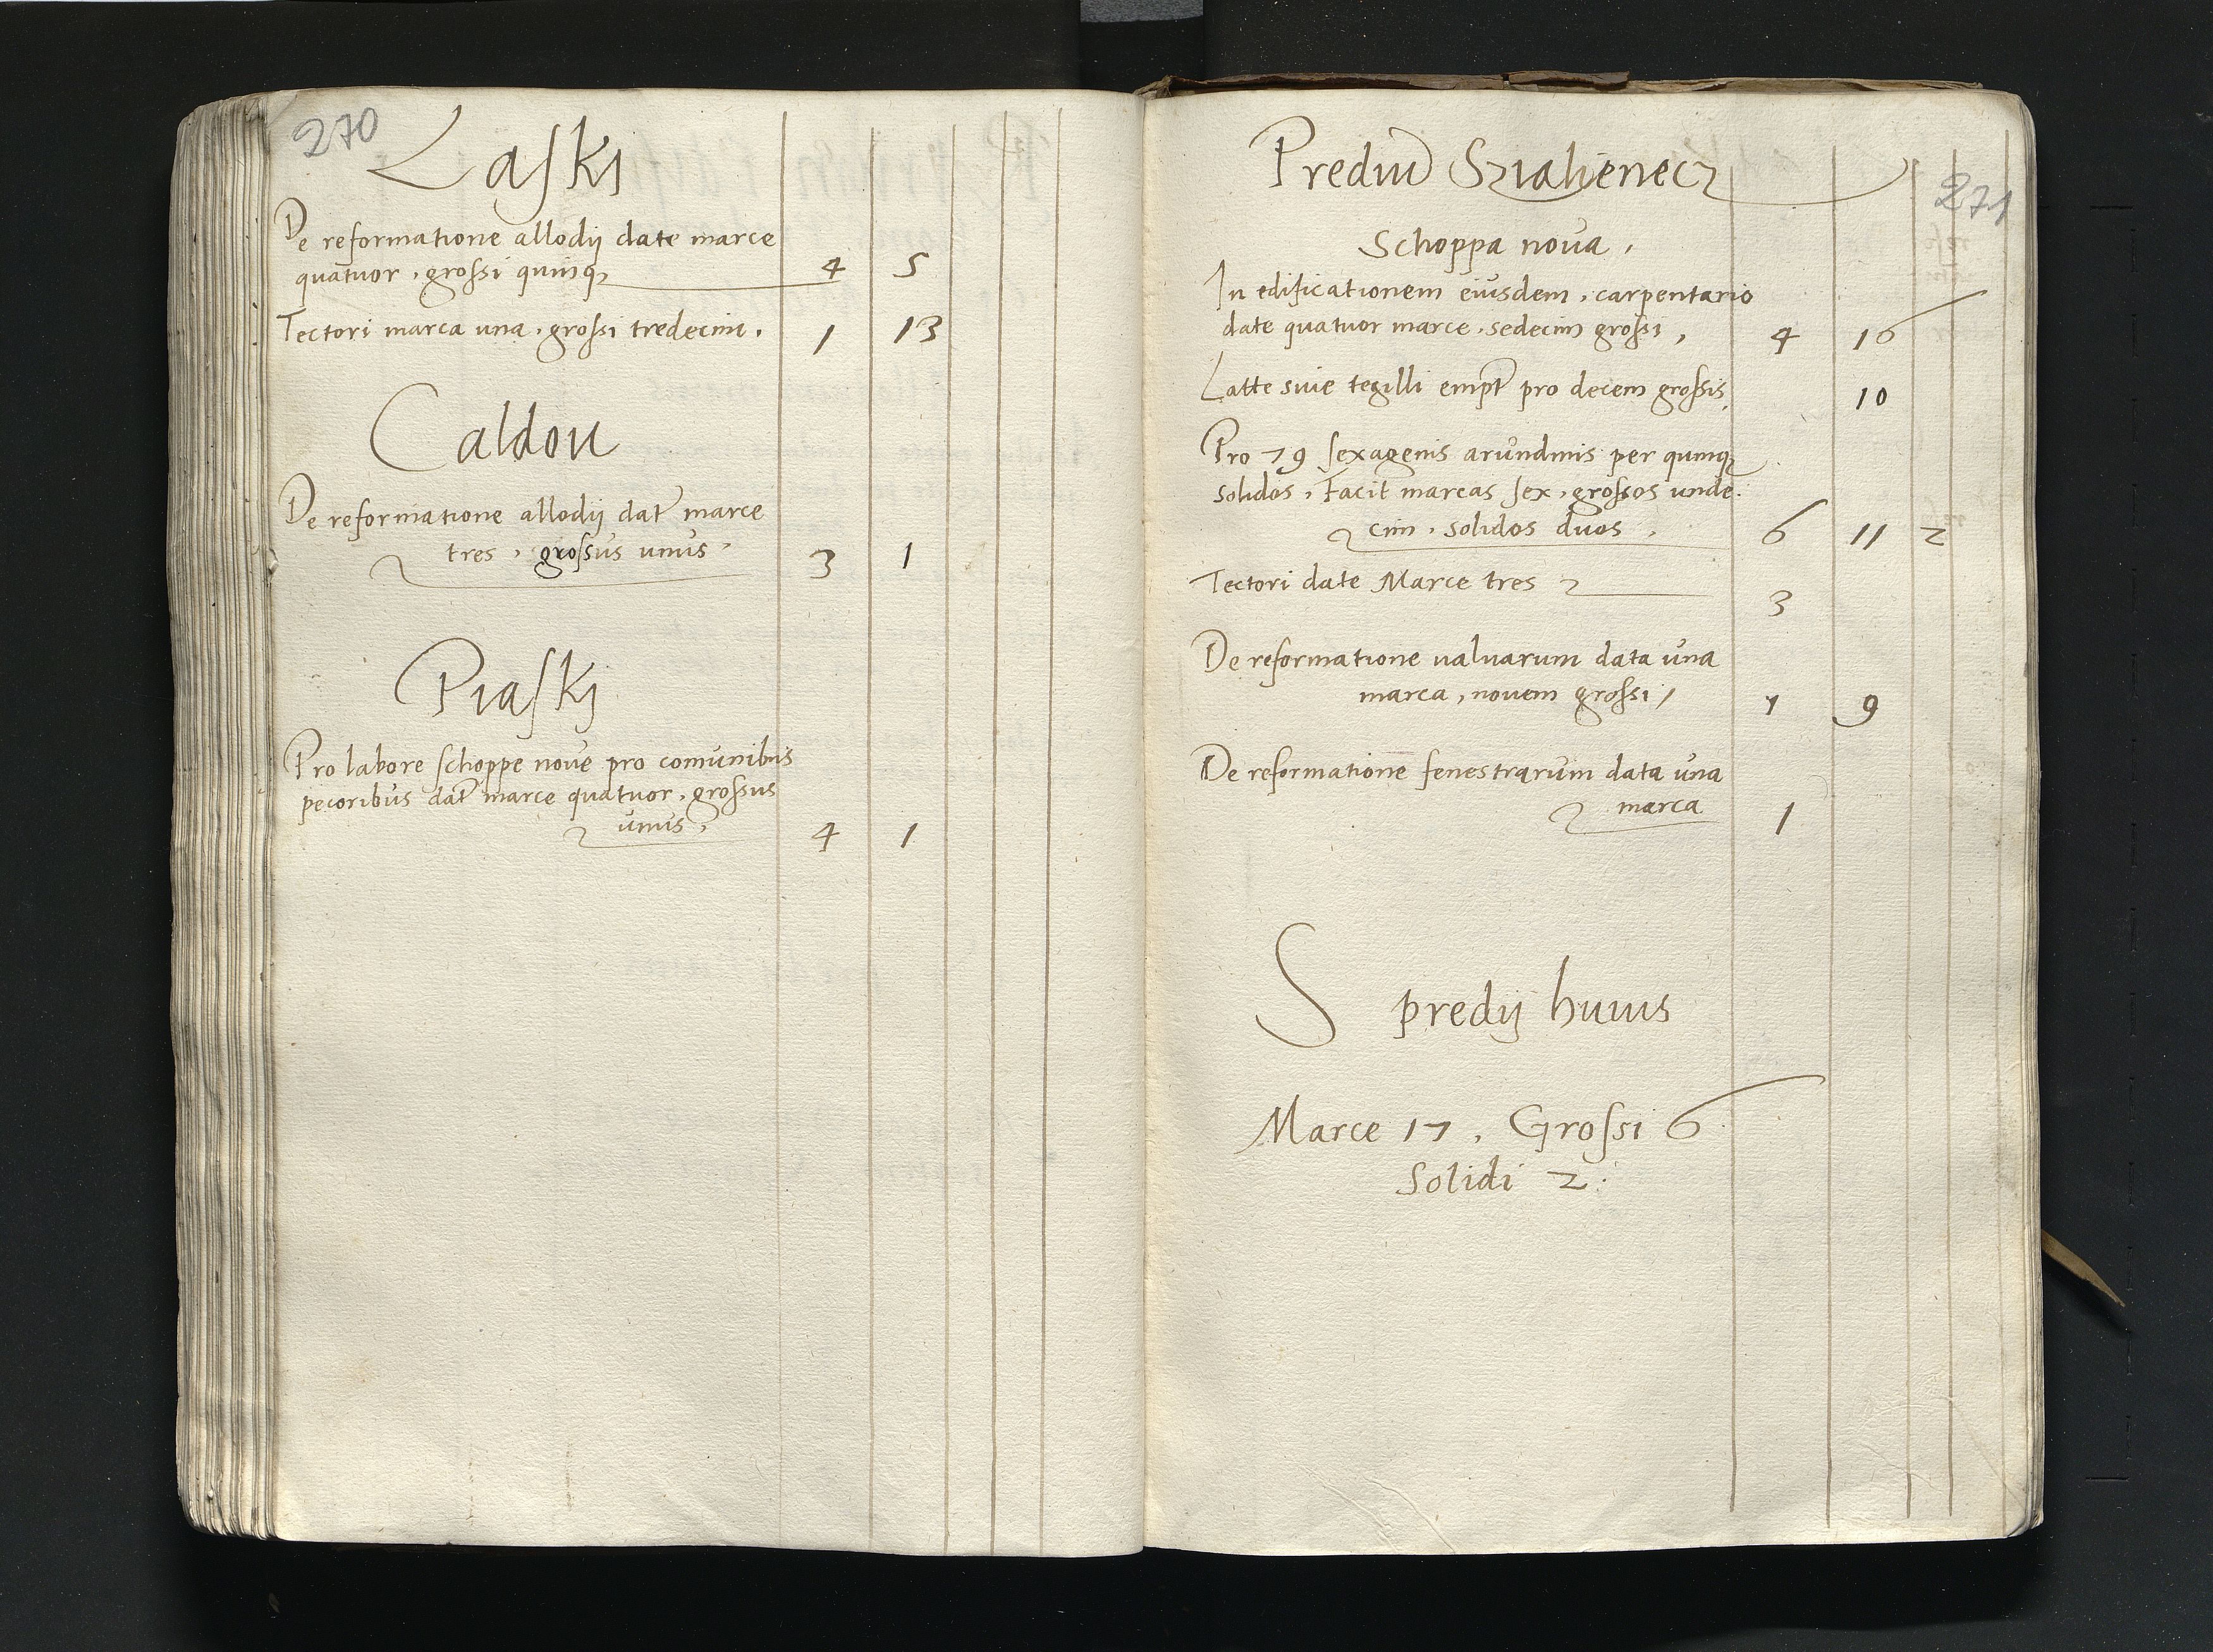 270
Laski
De reformatione allodij date marce
quatuor, grossi quinq3 4 5
Tectori marca una, grossi tredecim. 1 13
Caldou
De reformatione allodij dat marce
tres, grossus unus. 3 1
Piaskj
Pro labore schoppe noue pro comunibus
pecoribus dat marce quatuor, grossus
unus. 4 1
271
Prediu Szialienecz
Schoppa noua.
In edificationem eiusdem, carpentario
date quatuor marce, sedecim grossi, 4 16
Latte siue tegilli empt pro decem grossis. 10
Pro 79 sexagenis arundinis per quinq3
solidos, Facit marcas sex, grossos unde.
cim, solidos duos. 6 11 2
Tectori date Marce tres 3
De reformatione ualuarum data una
marca, nouem grossi, 1 9
De reformatione fenestrarum data una
marca 1
S predij huius
Marce 17, Grossi 6
Solidi 2.